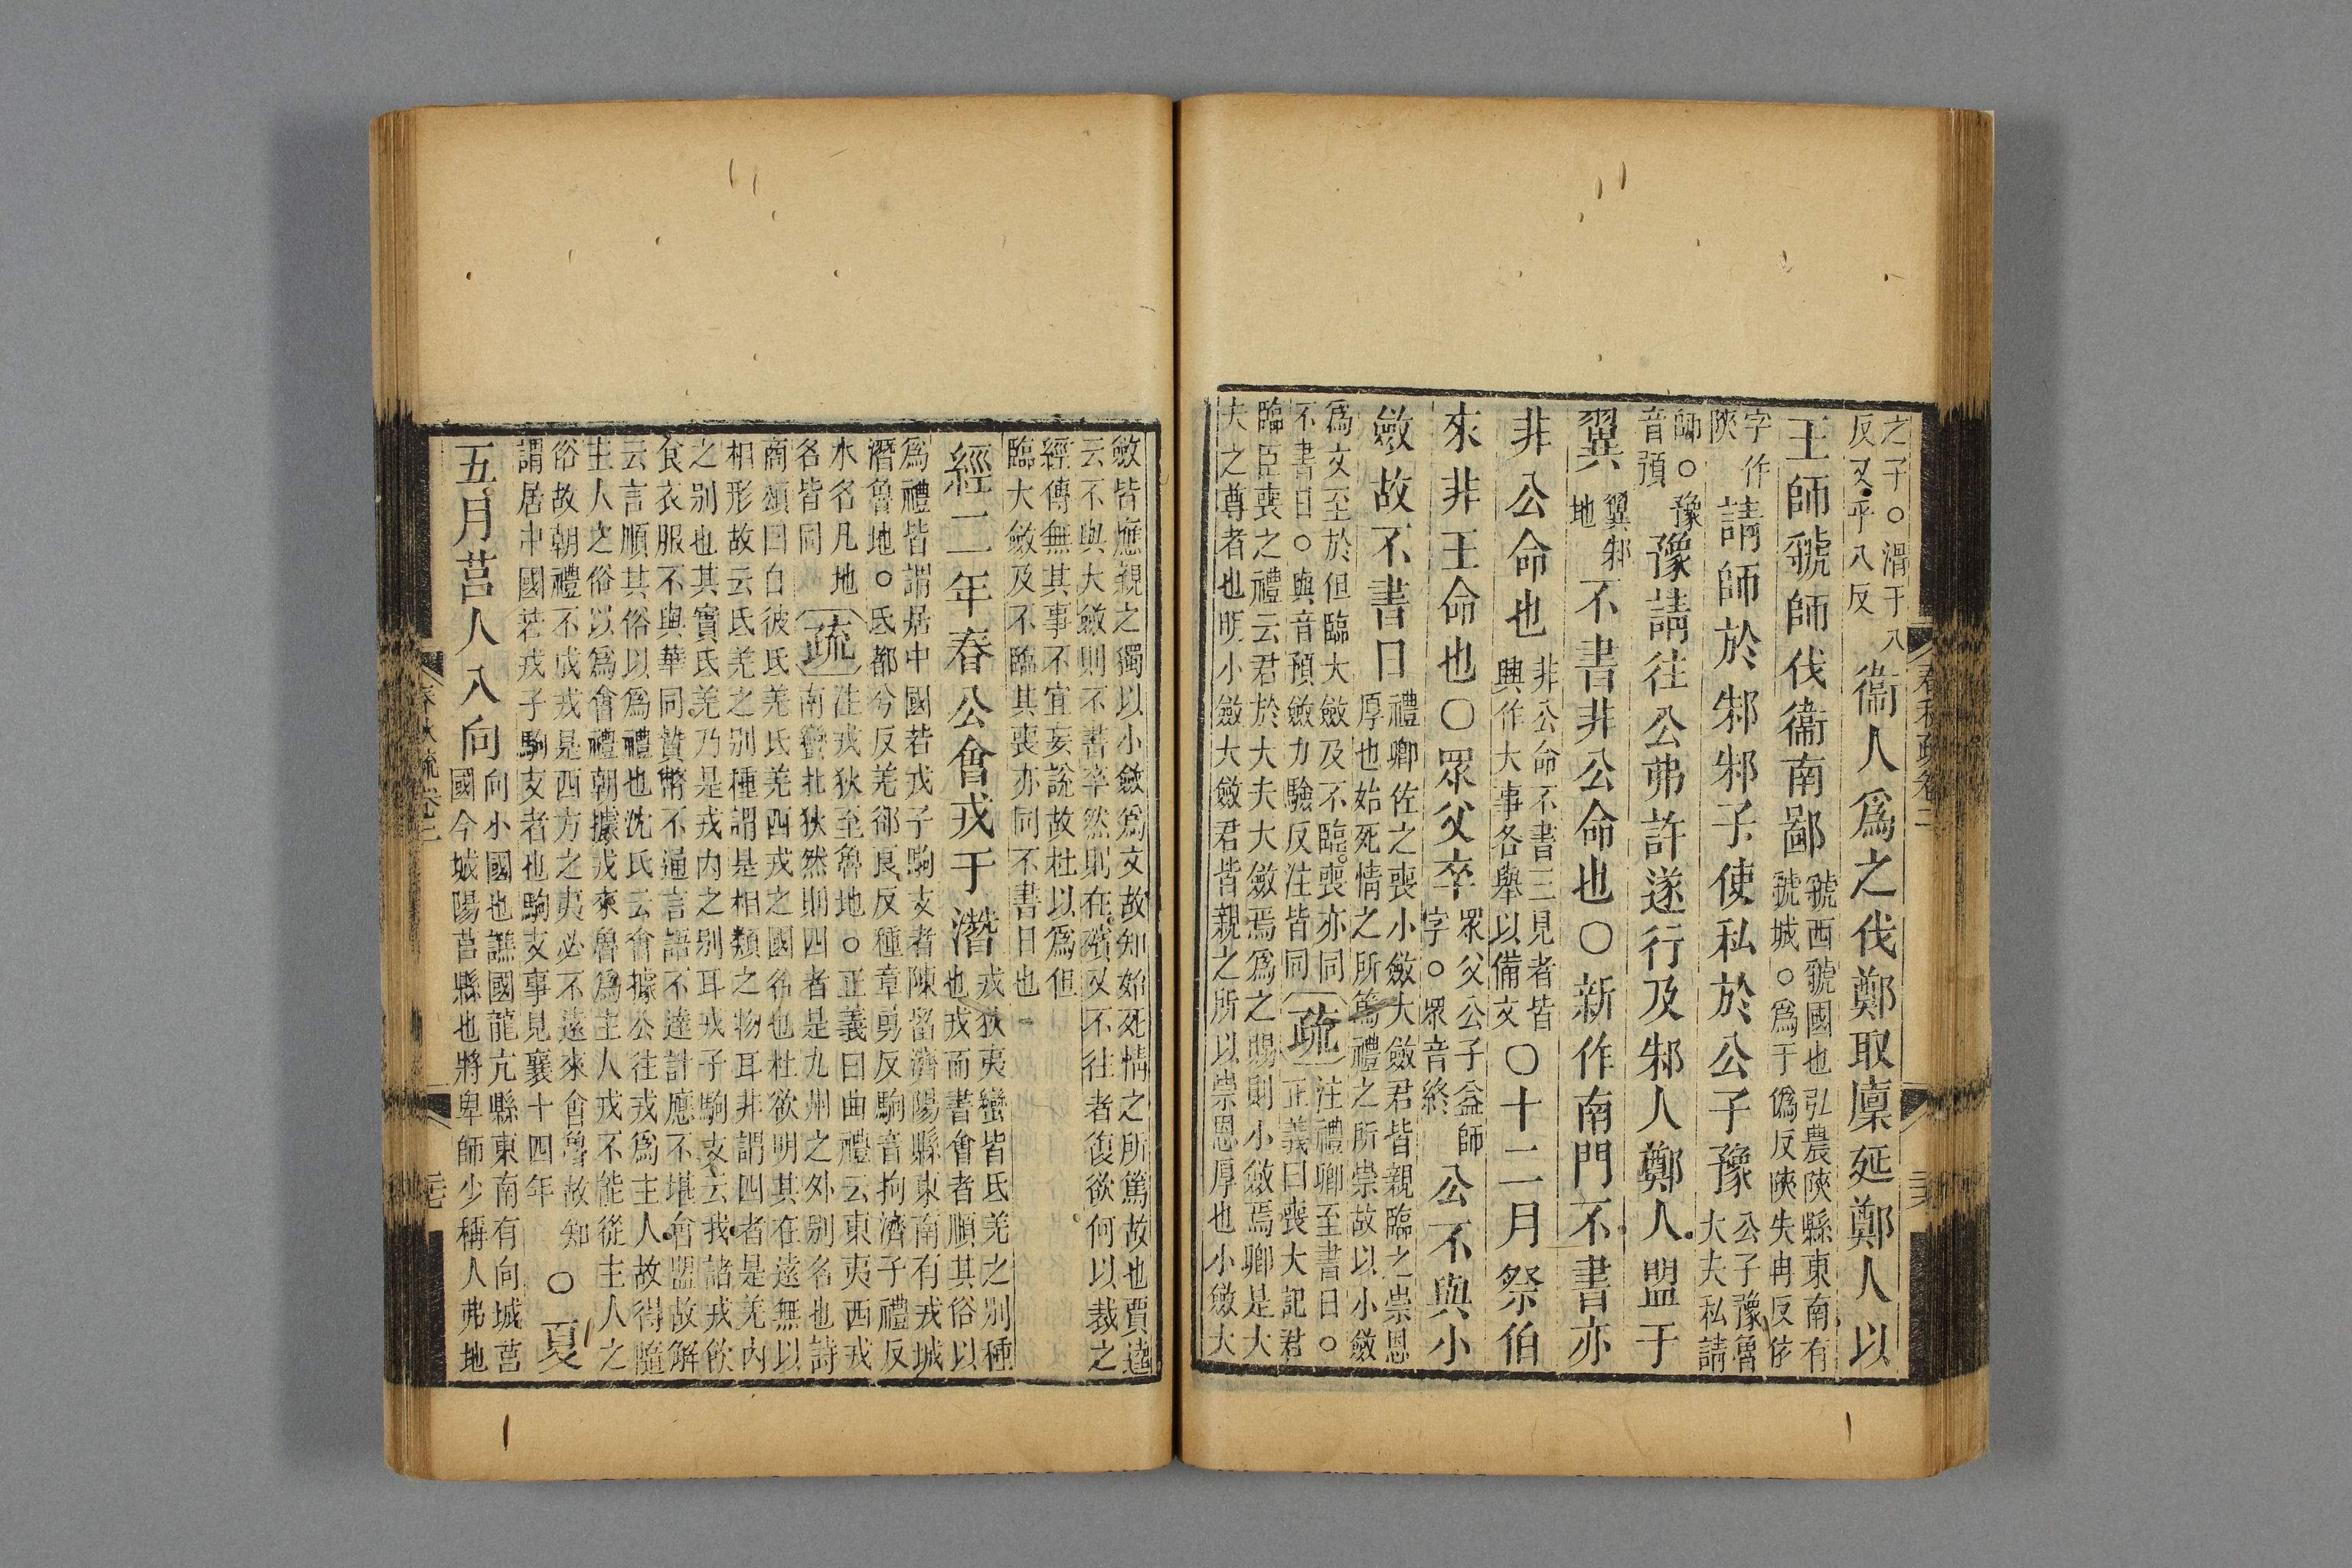 之子○滑于八
反又乎八反
衞人爲之伐鄭取廩延鄭人以
王師虢師伐衞南鄙
虢西虢國也弘農陝縣東南有
虢城○爲于僞反陝失冉反依
字作
陝
請師於邾邾子使私於公子豫
公子豫魯
大夫私請
師○豫
音預
豫請往公弗許遂行及邾人鄭人盟于
翼
翼邾
地
不書非公命也○新作南門不書亦
非公命也
非公命不書三見者皆
興作大事各舉以備文
○十二月祭伯
來非王命也○眾父卒
眾父公子益師
字○眾音終
公不與小
斂故不書日
禮卿佐之喪小斂大斂君皆親臨之崇恩
厚也始死情之所篤禮之所崇故以小斂
爲文至於但臨大斂及不臨喪亦同
不書日○與音預斂力驗反注皆同
疏
注禮卿至書日○
正義曰喪大記君
臨臣喪之禮云君於大夫大斂焉爲之賜則小斂焉卿是大
夫之尊者也明小斂大斂君皆親之所以崇恩厚也小斂大
斂皆應親之獨以小斂爲文故知始死情之所篤故也賈逵
云不與大斂則不書卒然則在殯又不往者復欲何以裁之
經傳無其事不宜妄說故杜以爲但
臨大斂及不臨其喪亦同不書日也
經二年春公會戎于潛
戎狄夷蠻皆氐羌之別種
也戎而書會者順其俗以
爲禮皆謂居中國若戎子駒支者陳留濟陽縣東南有戎城
潛魯地○氐都兮反羌郤良反種章勇反駒音拘濟子禮反
水名凡地
名皆同
疏
注戎狄至魯地○正義曰曲禮云東夷西戎
南蠻北狄然則四者是九州之外別名也詩
商頌曰自彼氐羌氐羌西戎之國名也杜欲明其在遠無以
相形故云氐羌之別種謂是相類之物耳非謂四者是羌內
之別也其實氐羌乃是戎內之別耳戎子駒支云我諸戎飲
食衣服不與華同贄幣不通言語不達計應不堪會盟故解
云言順其俗以爲禮也沈氏云會據公往戎爲主人故得隨
主人之俗以爲會禮朝據戎來魯爲主人戎不能從主人之
俗故朝禮不成戎是西方之夷必不遠來會魯故知
謂居中國若戎子駒支者也駒支事見襄十四年
○夏
五月莒人入向
向小國也譙國龍亢縣東南有向城莒
國今城陽莒縣也將卑師少稱人弗地
春秋疏卷二